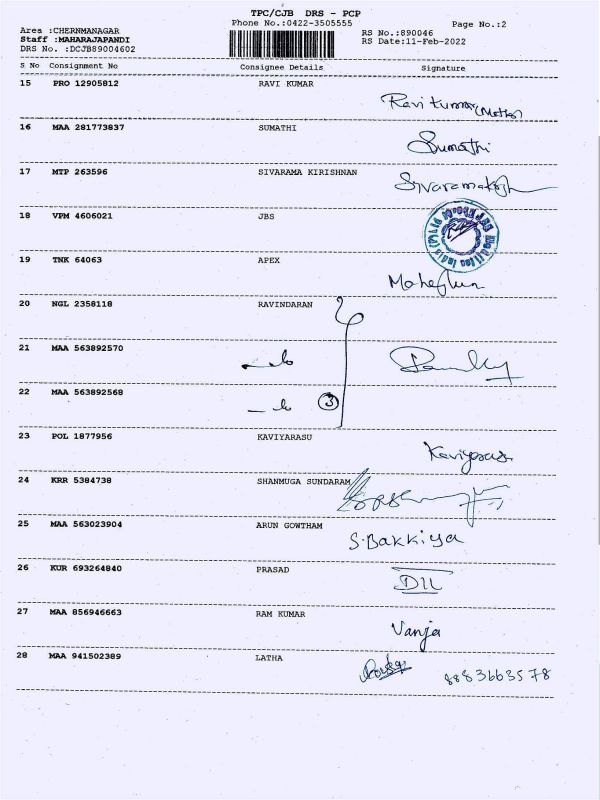 TPC/CJB DRS - PCP
Phone No.:0422-3505555
Page No.:2
Area :CHERNMANAGAR
Staff :MAHARAJAPANDI
DRS No. :DCJB89004602
RS No.:890046
RS Date:11-Feb-2022
S No Consignment No Consignee Details Signature
15 PRO 12905812 RAVI KUMAR
Ravi kumar
16 MAA 281773837 SUMATHI
Sumathi
17 MTP 263596 SIVARAMA KIRISHNAN
18 VPM 4606021 JBS
19 TNK 64063 APEX
20 NGL 2358118 RAVINDARAN
21 MAA 563892570
22 MAA 563892568
3
23 POL 1877956 KAVIYARASU
24 KRR 5384738 SHANMUGA SUNDARAM
25 MAA 563023904 ARUN GOWTHAM
S.Bakkiya
26 KUR 693264840 PRASAD
27 MAA 856946663 RAM KUMAR
Vanja
28 MAA 941502389 LATHA
8883663578